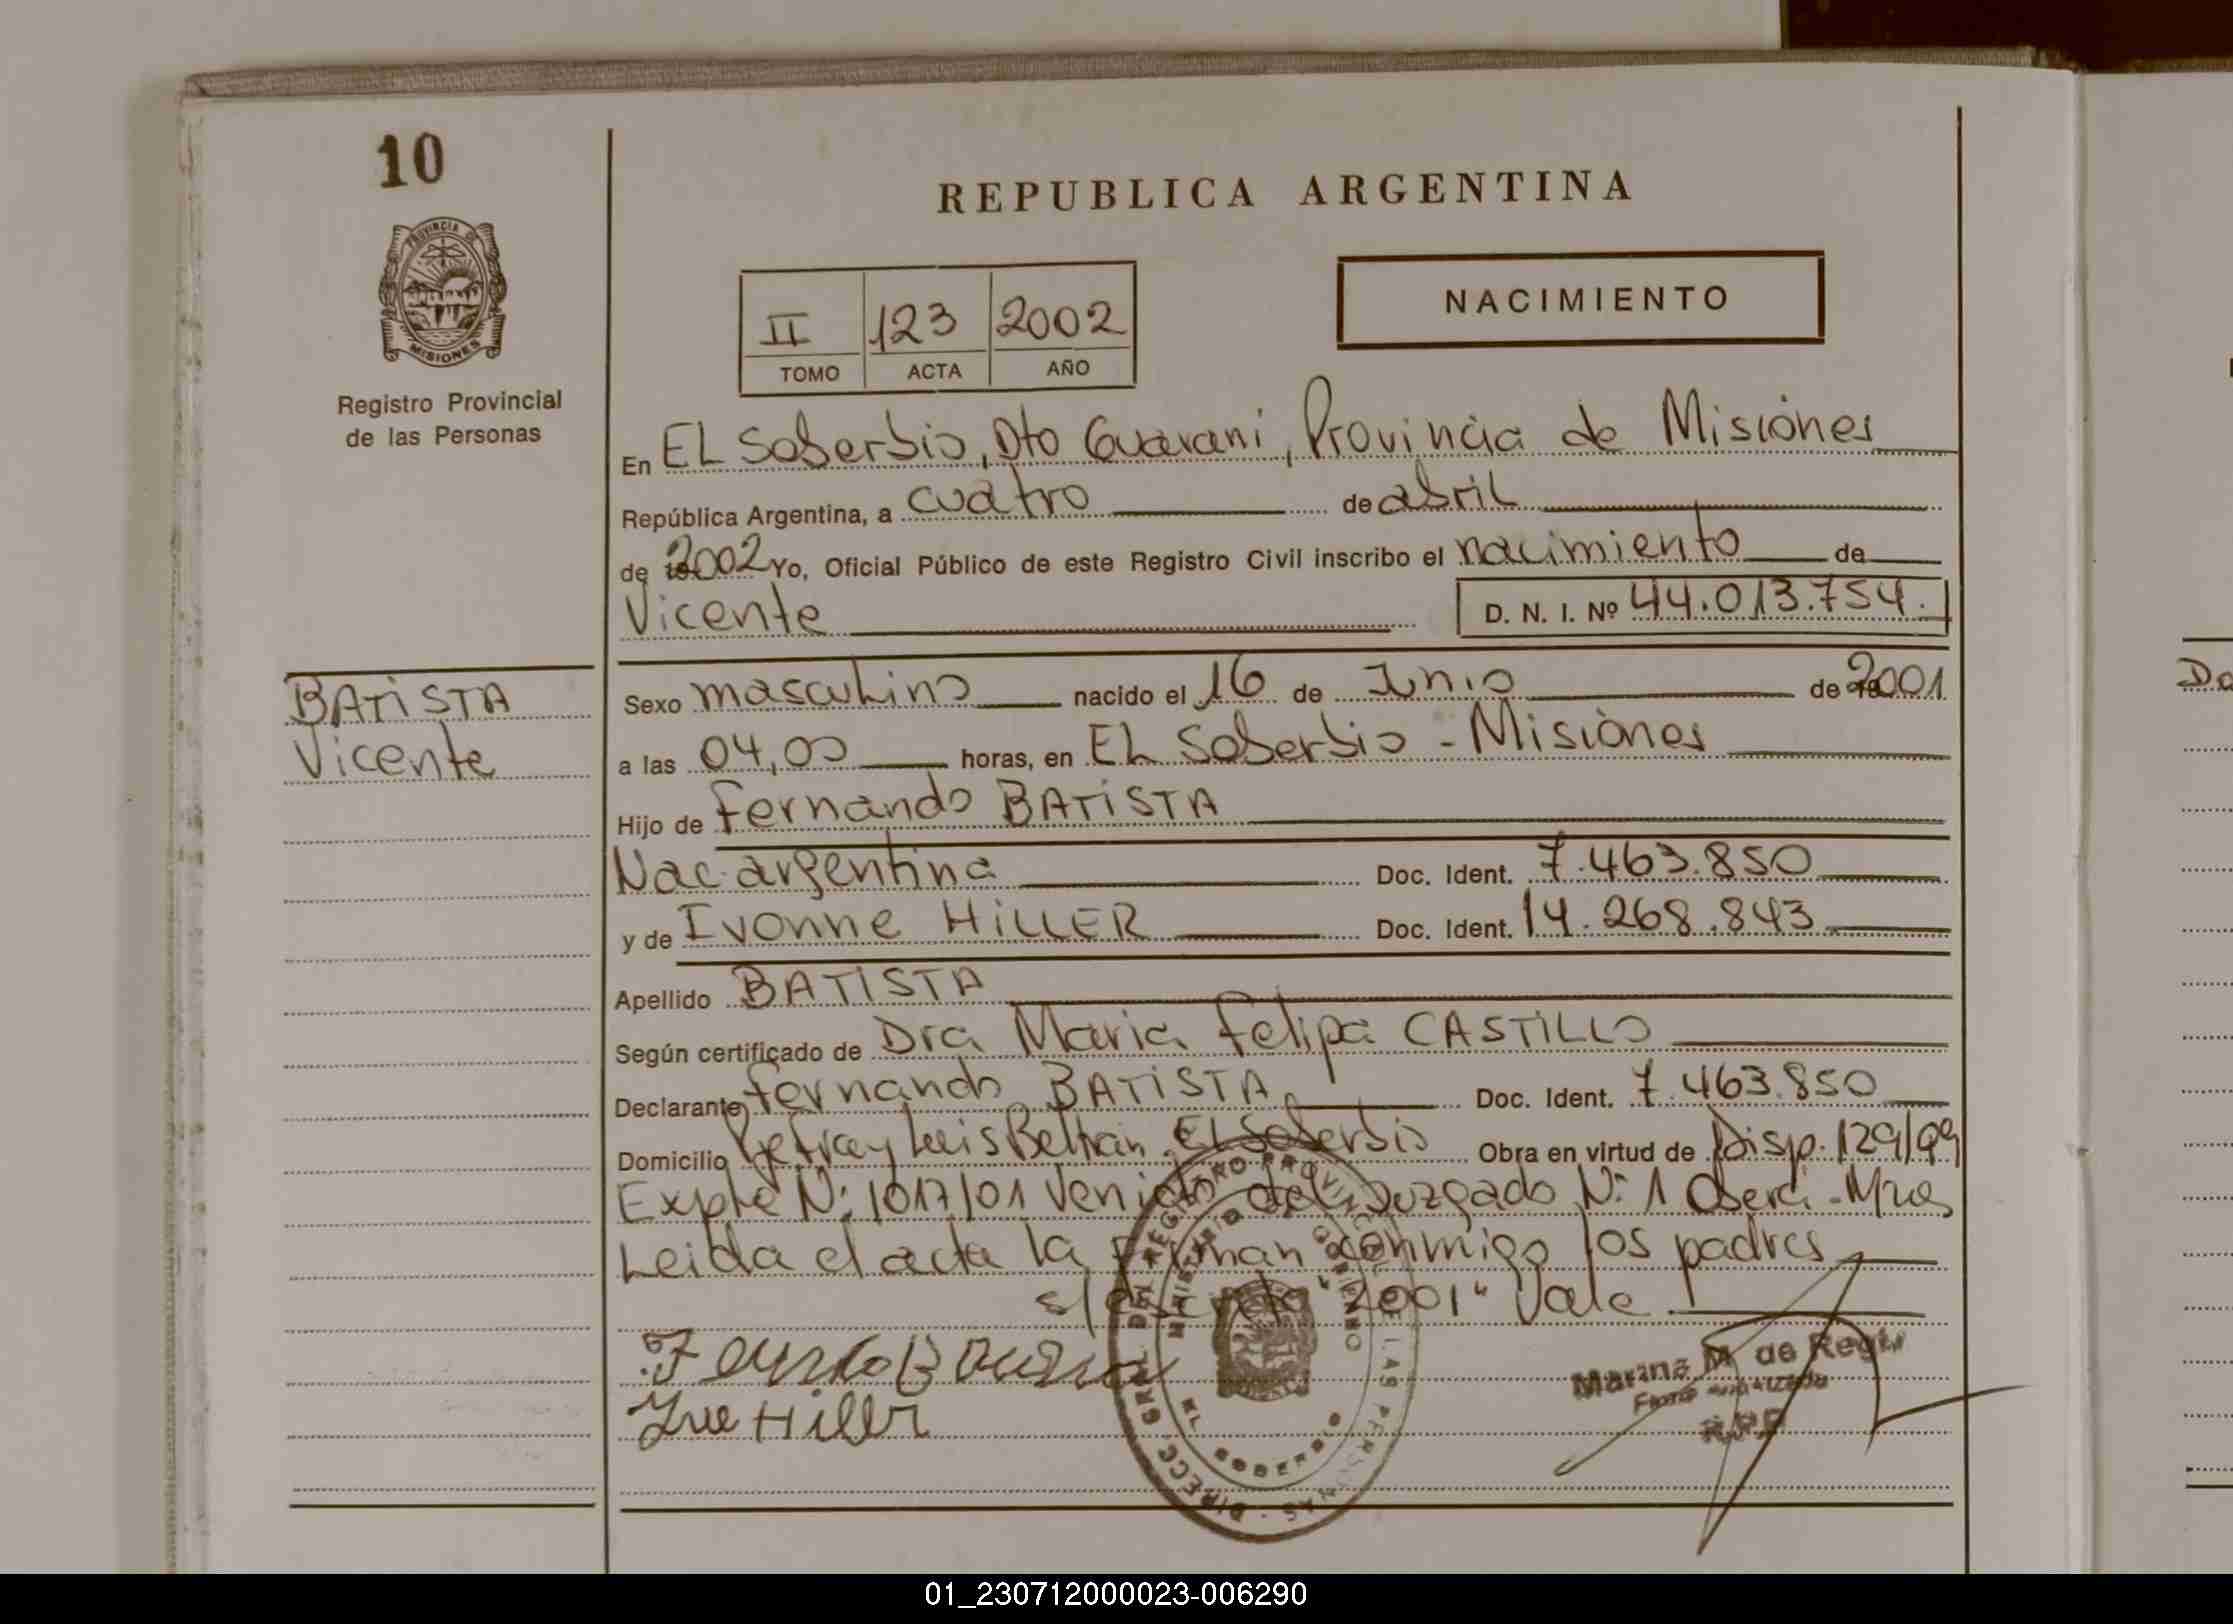 10
PROVINCIA DE
MISIONES
Registro Provincial
de las Personas
REPUBLICA ARGENTINA
II 123 2002
TOMO ACTA AÑO
NACIMIENTO
En EL Soberbio, Dto Guarani, Provincia de Misiones
República Argentina, a cuatro de abril
de 2002 Yo, Oficial Público de este Registro Civil inscribo el nacimiento de
Vicente D. N. I. Nº 44.013.754.
BATISTA
Vicente
Sexo masculino nacido el 16 de Junio de 2001
a las 04,00 horas, en EL Soberbio - Misiones
Hijo de Fernando BATISTA
Nac. argentina Doc. Ident. 7.463.850
y de Ivonne HILLER Doc. Ident. 14.268.843
Apellido BATISTA
Según certificado de Dra Maria Felipa CASTILLO
Declarante Fernando BATISTA Doc. Ident. 7.463.850
Domicilio Luis Beltran, El Soberbio Obra en virtud de Disp. 129/99
Expte N: 1017/01 Venido del Juzgado N: 1 Oberá - Mnes
Leida el acta la firman conmigo los padres
"2001" Vale
Hiller
DIRECC. GRAL. DEL REGISTRO PROVINCIAL DE LAS PERSONAS
MINISTERIO DE GOBIERNO
EL SOBERBIO
Marina M. de Regi
Do
01_230712000023-006290